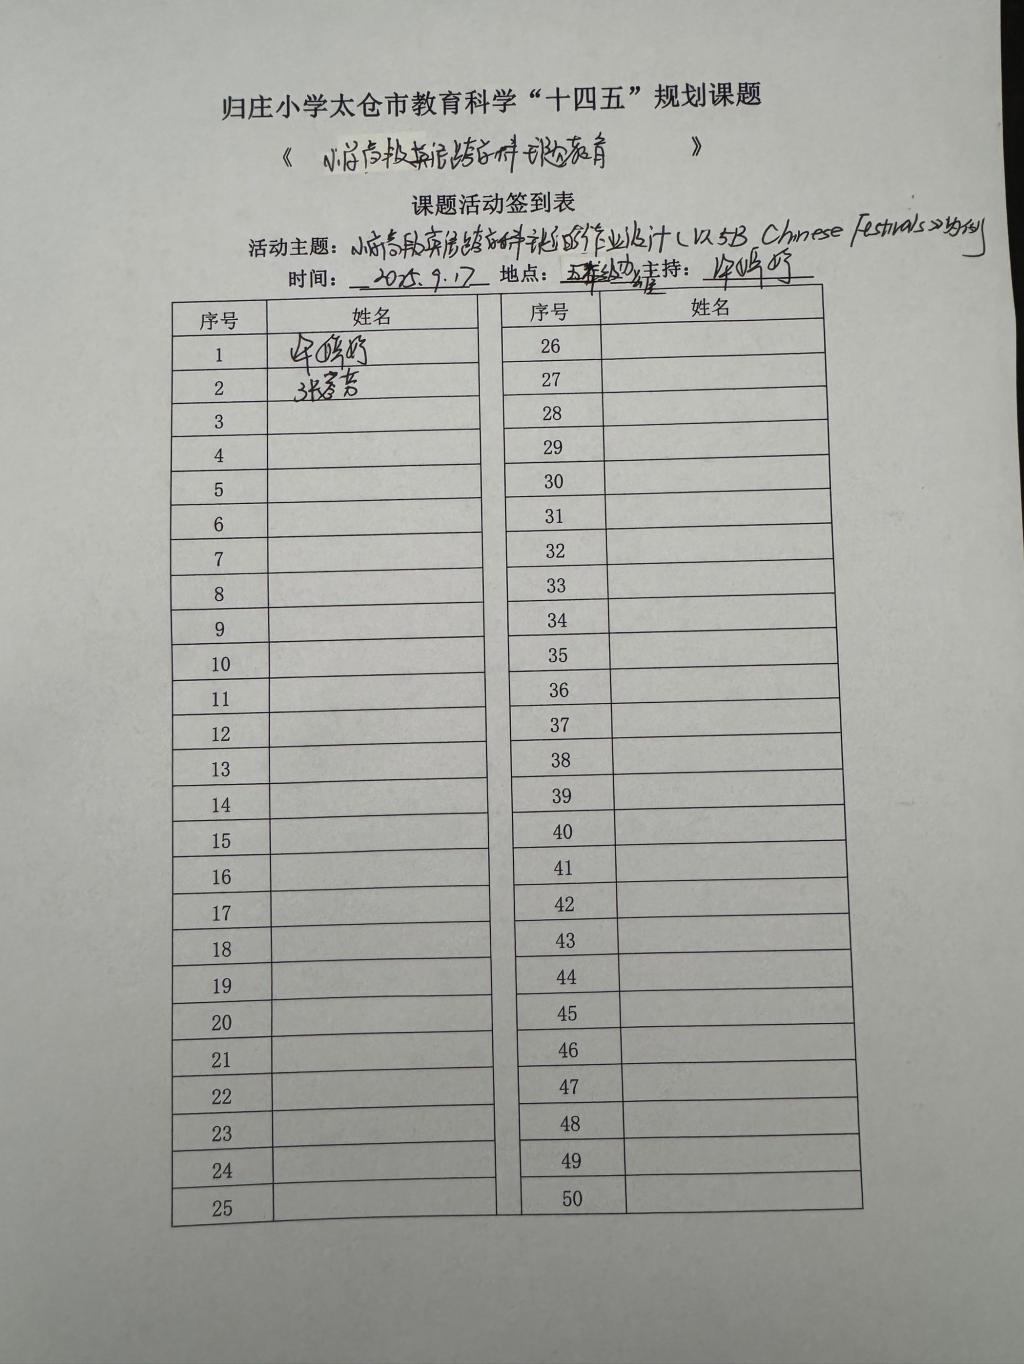 归庄小学太仓市教育科学“十四五”规划课题
《 小学高段英语跨学科主题教育 》
课题活动签到表
活动主题：小学高段英语跨学科 作业设计（以5B Chinese Festivals》为例
时间： 2025.9.17 地点： 主持：
序号 姓名 序号 姓名
1 26
2 27
3 28
4 29
5 30
6 31
7 32
8 33
9 34
10 35
11 36
12 37
13 38
14 39
15 40
16 41
17 42
18 43
19 44
20 45
21 46
22 47
23 48
24 49
25 50